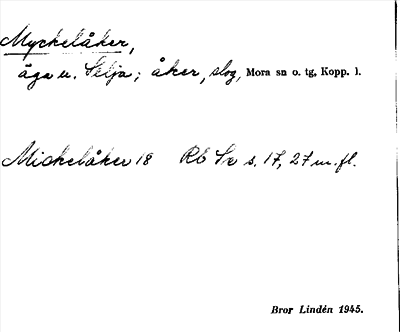 Myckelåker,
äga u. Selja; åker, slog, Mora sn o. tg, Kopp. l.
Mickelåker 18 Rb Sr s. 17, 27 m. fl.
Bror Lindén 1945.